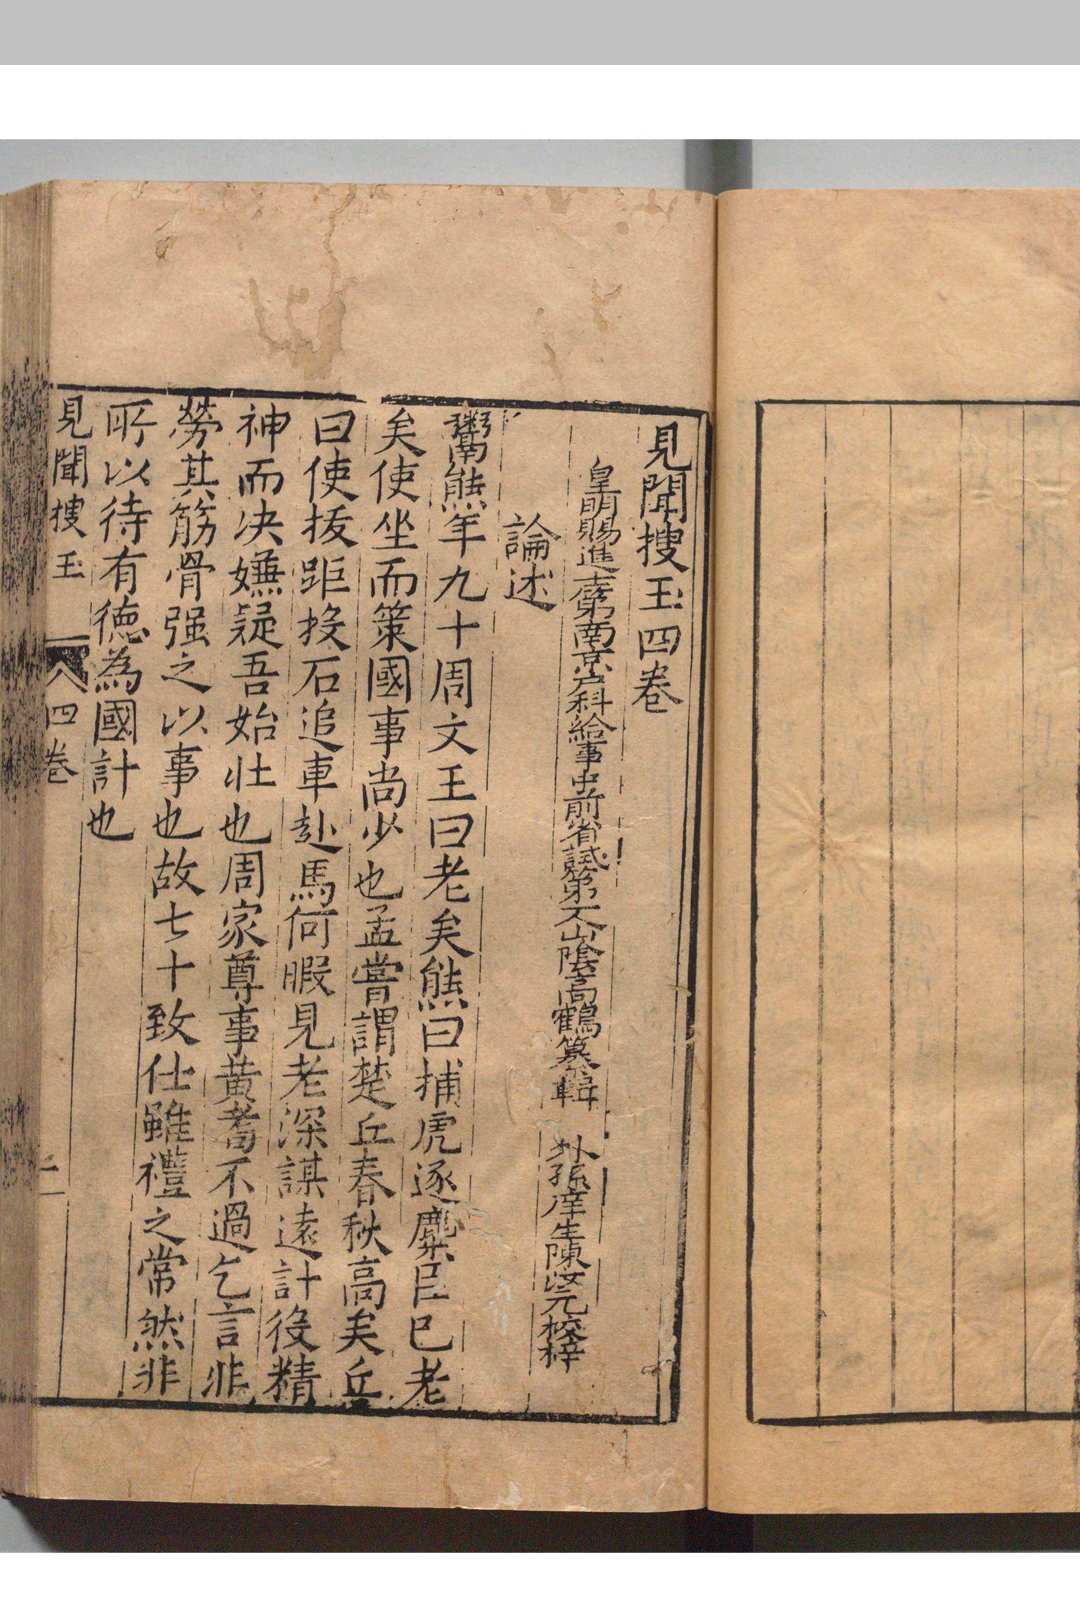 見聞搜玉四卷
皇明賜進士第南京户科給事中前省試第一人山陰高鶴纂輯 外孫庠生陳汝元校梓
論述
鬻熊年九十周文王曰老矣熊曰捕虎逐麋臣已老
矣使坐而策國事尚少也孟嘗謂楚丘春秋高矣丘
曰使拔距投石追車赴馬何暇見老深謀遠計役精
神而决嫌疑吾始壯也周家尊事黄耇不過乞言非
勞其筋骨强之以事也故七十致仕雖禮之常然非
所以待有德為國計也
見聞搜玉 四卷 一